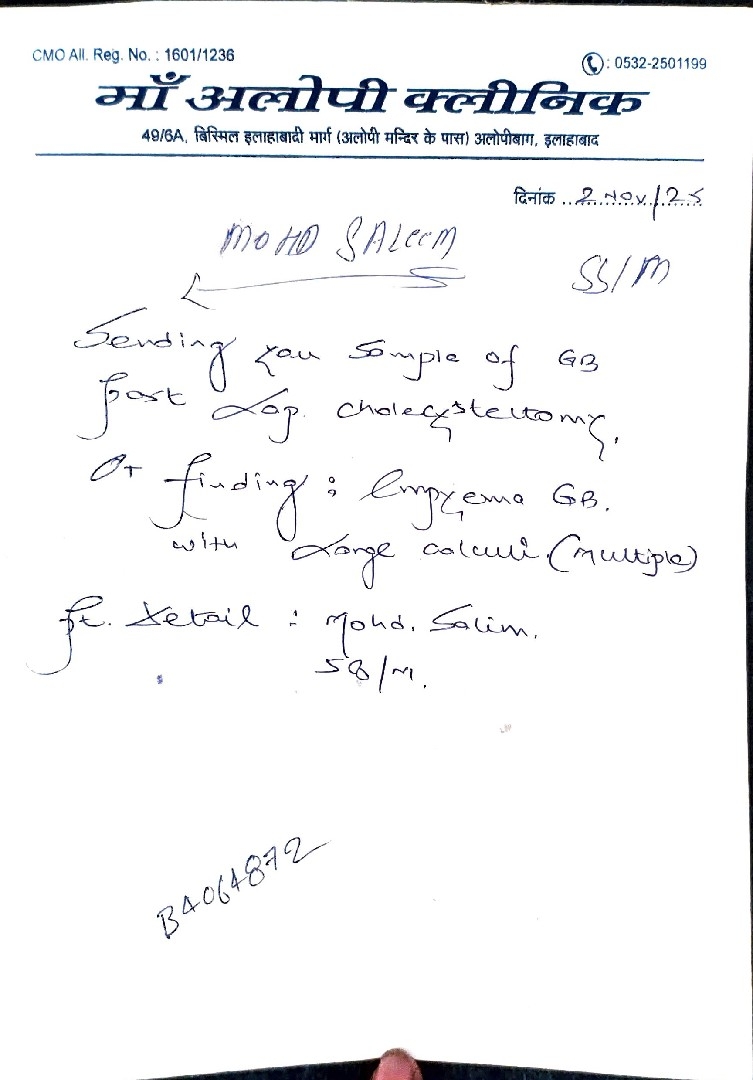 CMO All. Reg. No. : 1601/1236
: 0532-2501199
माँ अलोपी क्लीनिक
49/6A, बिस्मिल इलाहाबादी मार्ग (अलोपी मन्दिर के पास) अलोपीबाग, इलाहाबाद
दिनांक ..2 Nov./25
MOHD SALEEM
/M
Sending you sample of GB
post Lap. cholecystectomy.
OT finding : Empyema GB.
with Large calculi. (Multiple)
Pt. Detail : Mohd. Salim.
58/M.
B4064872